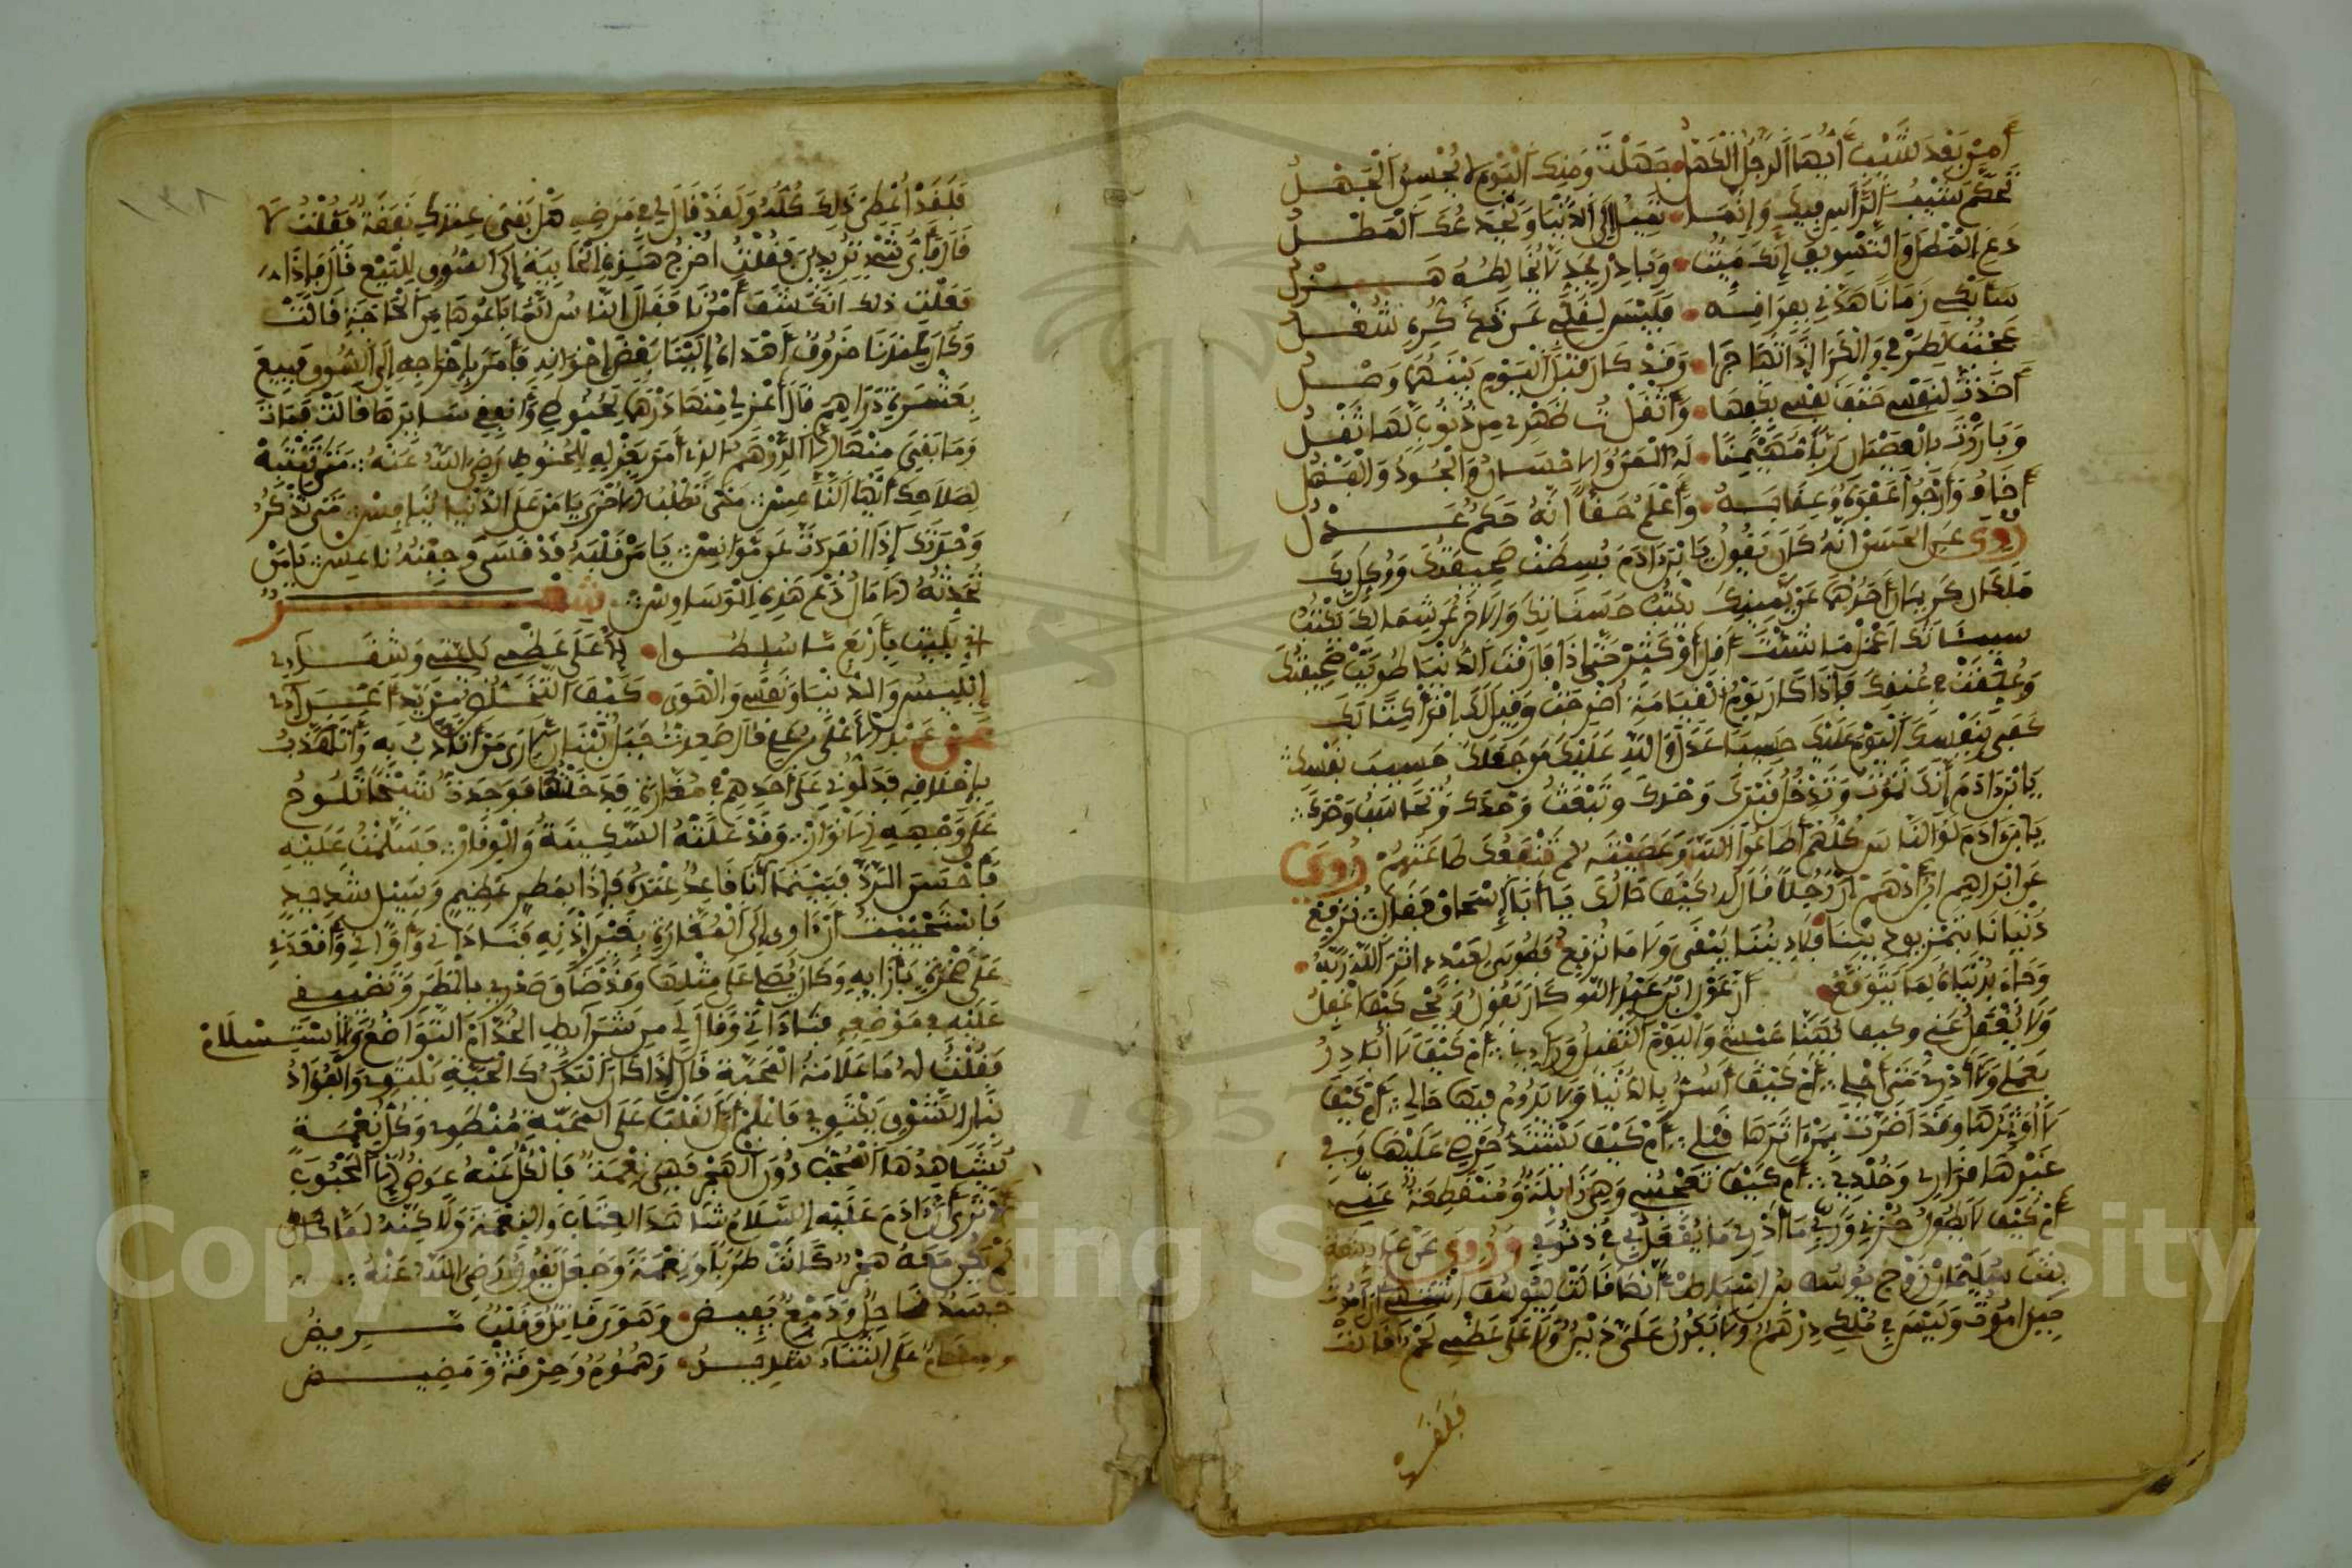 أَمِنْ بَعْدِ الشَّيْبِ أَيُّهَا الرَّجُلُ الْكَهْلُ جَهِلْتَ وَمِنْكَ الْيَوْمَ لَا يُحْسَنُ الْجَهْلُ
تَحَكَّمَ شَيْبُ الرَّأْسِ فِيكَ وَإِنَّمَا تَمِيلُ إِلَى الدُّنْيَا
دَعِ الْمَطْلَ وَالتَّسْوِيفَ إِنَّكَ مَيِّتٌ وَبَادِرْ بِجِدٍّ لَا يُخَالِطُهُ هَزْلُ
سَأَبْكِي زَمَانًا هَدَّنِي بِفِرَاقِهِ فَلَيْسَ لِقَلْبِي عَنْ شُغْلُ
وَقَدْ كَانَ قَبْلَ الْيَوْمِ بَيْنَهُمَا وَصْلُ
أَخَذْتُ لِنَفْسِي حَتْفَ نَفْسِي بِكَفِّهَا وَأَثْقَلْتُ ظَهْرِي مِنْ ذُنُوبٍ لَهَا ثِقْلُ
وَبَارَزْتُ بِالْعِصْيَانِ رَبًّا مُهَيْمِنًا لَهُ الْمَنُّ وَالْإِحْسَانُ وَالْجُودُ وَالْفَضْلُ
أَخَافُ وَأَرْجُو عَفْوَهُ وَعِقَابَهُ وَأَعْلَمُ حَقًّا أَنَّهُ حَكَمٌ عَدْلُ
رُوِيَ عَنِ الْحَسَنِ أَنَّهُ كَانَ يَقُولُ يَا بْنَ آدَمَ بُسِطَتْ صَحِيفَتُكَ وَوُكِّلَ بِكَ
مَلَكَانِ كَرِيمَانِ أَحَدُهُمَا عَنْ يَمِينِكَ يَكْتُبُ حَسَنَاتِكَ وَالْآخَرُ عَنْ شِمَالِكَ يَكْتُبُ
سَيِّئَاتِكَ اعْمَلْ مَا شِئْتَ أَقِلَّ أَوْ كَثِّرْ حَتَّى إِذَا فَارَقْتَ الدُّنْيَا طُوِيَتْ صَحِيفَتُكَ
وَعُلِّقَتْ فِي عُنُقِكَ فَإِذَا كَانَ يَوْمُ الْقِيَامَةِ أُخْرِجَتْ وَقِيلَ لَكَ اقْرَأْ كِتَابَكَ
كَفَى بِنَفْسِكَ الْيَوْمَ عَلَيْكَ حَسِيبًا عَدَلَ وَاللَّهِ عَلَيْكَ مَنْ جَعَلَكَ حَسِيبَ نَفْسِكَ
يَا بْنَ آدَمَ إِنَّكَ تَمُوتُ وَتَدْخُلُ قَبْرَكَ وَحْدَكَ وَتُبْعَثُ وَحْدَكَ وَتُحَاسَبُ وَحْدَكَ
يَا بْنَ آدَمَ لَوْ أَنَّ النَّاسَ كُلَّهُمْ أَطَاعُوا اللَّهَ وَعَصَيْتَهُ لَمْ تَنْفَعْكَ طَاعَتُهُمْ رُوِيَ
عَنْ إِبْرَاهِيمَ بْنِ أَدْهَمَ أَنَّ رَجُلًا قَالَ لَهُ كَيْفَ حَالُكَ يَا أَبَا إِسْحَاقَ فَقَالَ نُرَقِّعُ
دُنْيَانَا بِتَمْزِيقِ دِينِنَا فَلَا دِينُنَا يَبْقَى وَلَا مَا نُرَقِّعُ فَطُوبَى لِعَبْدٍ آثَرَ اللَّهَ رَبَّهُ
وَجَادَ بِدُنْيَاهُ لِمَا يَتَوَقَّعُ أَنَّ عَوْنَ بْنَ عَبْدِ اللَّهِ كَانَ يَقُولُ وَيْحِي كَيْفَ أَغْفُلُ
وَلَا يُغْفَلُ عَنِّي وَكَيْفَ يَهْنِينِي عَيْشِي وَالْيَوْمُ الثَّقِيلُ وَرَائِي أَمْ كَيْفَ لَا أُبَادِرُ
بِعَمَلِي وَلَا أَدْرِي مَتَى أَجَلِي أَمْ كَيْفَ أُسَرُّ بِالدُّنْيَا وَلَا يَدُومُ فِيهَا حَالِي أَمْ كَيْفَ
أُوثِرُهَا وَقَدْ أَضَرَّتْ بِمَنْ آثَرَهَا قَبْلِي أَمْ كَيْفَ يَشْتَدُّ حِرْصِي عَلَيْهَا وَفِي
غَيْرِهَا قَرَارِي وَخُلْدِي أَمْ كَيْفَ تُعْجِبُنِي وَهِيَ زَائِلَةٌ وَمُنْقَطِعَةٌ عَنِّي
أَمْ كَيْفَ لَا يَطُولُ حُزْنِي وَرَبِّي مَا أَدْرِي مَا يُفْعَلُ بِي فِي ذُنُوبِي وَرُوِيَ عَنْ
بِنْتِ سُلَيْمَانَ زَوْجِ يُوسُفَ بْنِ أَسْبَاطٍ أَنَّهَا قَالَتْ لِيُوسُفَ أَشْتَهِي أَنْ أَمُوتَ
حِينَ أَمُوتُ وَلَيْسَ فِي مُلْكِي دِرْهَمٌ وَلَا يَكُونُ عَلَيَّ دَيْنٌ وَلَا عَلَى عَظْمِي لَحْمٌ قَالَتْ
فَلَقَدْ
١٣٨
فَلَقَدْ أُعْطِيَ ذَلِكَ كُلَّهُ وَلَقَدْ قَالَ لِي فِي مَرَضِهِ هَلْ بَقِيَ عِنْدَكِ نَفَقَةٌ فَقُلْتُ لَا
قَالَ فَأَيُّ شَيْءٍ تُرِيدِينَ فَقُلْتُ أُخْرِجُ هَذِهِ الْخَابِيَةَ إِلَى السُّوقِ لِلْبَيْعِ قَالَ فَإِذَا
فَعَلْتِ ذَلِكَ انْكَشَفَ أَمْرُنَا فَقَالَ النَّاسُ إِنَّمَا بَاعُوهَا مِنَ الْحَاجَةِ قَالَتْ
وَكَانَ عِنْدَنَا خَرُوفٌ أَهْدَاهُ إِلَيْنَا بَعْضُ إِخْوَانِهِ فَأَمَرَ بِإِخْرَاجِهِ إِلَى السُّوقِ فَبِيعَ
بِعَشَرَةِ دَرَاهِمَ قَالَ اعْزِلِي مِنْهَا دِرْهَمًا لِحَنُوطِي وَأَنْفِقِي سَائِرَهَا قَالَتْ فَمَاتَ
وَمَا بَقِيَ مِنْهَا إِلَّا الدِّرْهَمُ الَّذِي أَمَرَ بِعَزْلِهِ لِلْحَنُوطِ رَضِيَ اللَّهُ عَنْهُ مَتَى تَنْتَبِهُ
لِصَلَاحِكَ أَيُّهَا النَّاعِسُ مَتَى تَطْلُبُ الْأُخْرَى يَا مَنْ عَلَى الدُّنْيَا يُنَافِسُ مَتَى تَذْكُرُ
وَحْدَتَكَ إِذَا انْفَرَدْتَ عَنْ مُؤَانِسٍ يَا مَنْ قَلْبُهُ قَدْ قَسَى وَجَفْنُهُ نَاعِسٌ يَا مَنْ
تُحَدِّثُهُ الْآمَالُ دَعْ هَذِهِ الْوَسَاوِسَ شِعْرٌ
إِنِّي بُلِيتُ بِأَرْبَعٍ مَا سُلِّطُوا إِلَّا عَلَى عَظْمِ بَلِيَّتِي وَشَقَائِي
إِبْلِيسُ وَالدُّنْيَا وَنَفْسِي وَالْهَوَى كَيْفَ التَّخَلُّصُ مِنْ يَدَيْ أَعْدَائِي
عَنْ عَبْدِ الْأَعْلَى بْنِ عَلِيٍّ قَالَ صَعِدْتُ جَبَلَ لُبْنَانَ أَرَى مَنْ أَتَأَدَّبُ بِهِ وَأَتَهَذَّبُ
بِأَخْلَاقِهِ فَدَلُّونِي عَلَى أَحَدِهِمْ فِي مَغَارَةٍ فَدَخَلْتُهَا فَوَجَدْتُ شَيْخًا تَلُوحُ
عَلَى وَجْهِهِ الْأَنْوَارُ وَقَدْ عَلَتْهُ السَّكِينَةُ وَالْوَقَارُ فَسَلَّمْتُ عَلَيْهِ
فَأَحْسَنَ الرَّدَّ فَبَيْنَمَا أَنَا قَاعِدٌ عِنْدَهُ فَإِذَا بِمَطَرٍ عَظِيمٍ وَسَيْلٍ شَدِيدٍ
فَاسْتَحْيَيْتُ أَنْ آوِيَ إِلَى الْمَغَارَةِ بِغَيْرِ إِذْنِهِ فَنَادَانِي وَآوَانِي وَأَقْعَدَنِي
عَلَى صَخْرَةٍ بِإِزَائِهِ وَكَانَ يُصَلِّي عَلَى مِثْلِهَا وَقَدْ ضَاقَ صَدْرِي بِالْمَطَرِ وَتَضْيِيقِي
عَلَيْهِ فِي مَوْضِعِهِ فَنَادَانِي وَقَالَ لِي مِنْ شَرَائِطِ الْخُدَّامِ التَّوَاضُعُ وَالْاسْتِسْلَامُ
فَقُلْتُ لَهُ مَا عَلَامَةُ الْمَحَبَّةِ قَالَ إِذَا كَانَ الْبَدَنُ كَالْحَيَّةِ يَلْتَوِي وَالْفُؤَادُ
بِنَارِ الشَّوْقِ يَكْتَوِي فَاعْلَمْ أَنَّ الْقَلْبَ عَلَى الْمَحَبَّةِ مُنْطَوِي وَكُلُّ نِعْمَةٍ
يُشَاهِدُهَا الْمُحِبُّ دُونَ الْهَجْرِ فَهِيَ نِعْمَةٌ فَالْكُلُّ عَنْهُ عِوَضٌ إِلَّا الْمَحْبُوبَ
أَلَمْ تَرَ أَنَّ آدَمَ عَلَيْهِ السَّلَامُ شَاهَدَ الْعِتَابَ وَالنِّقْمَةَ وَلَاكِنَّهُ لَمَّا
لَمْ يَكُنْ مَعَهُ هَجْرٌ كَانَتْ طَرَبًا وَنِعْمَةً وَجَعَلَ يَقُولُ رَضِيَ اللَّهُ عَنْهُ
جَسَدٌ نَاحِلٌ وَدَمْعٌ يَفِيضُ وَهَوًى قَاتِلٌ وَقَلْبٌ مَرِيضُ
وَسَقَامٌ عَلَى التَّنَائِي شَدِيدٌ وَهُمُومٌ وَحُرْقَةٌ وَمَضِيضُ